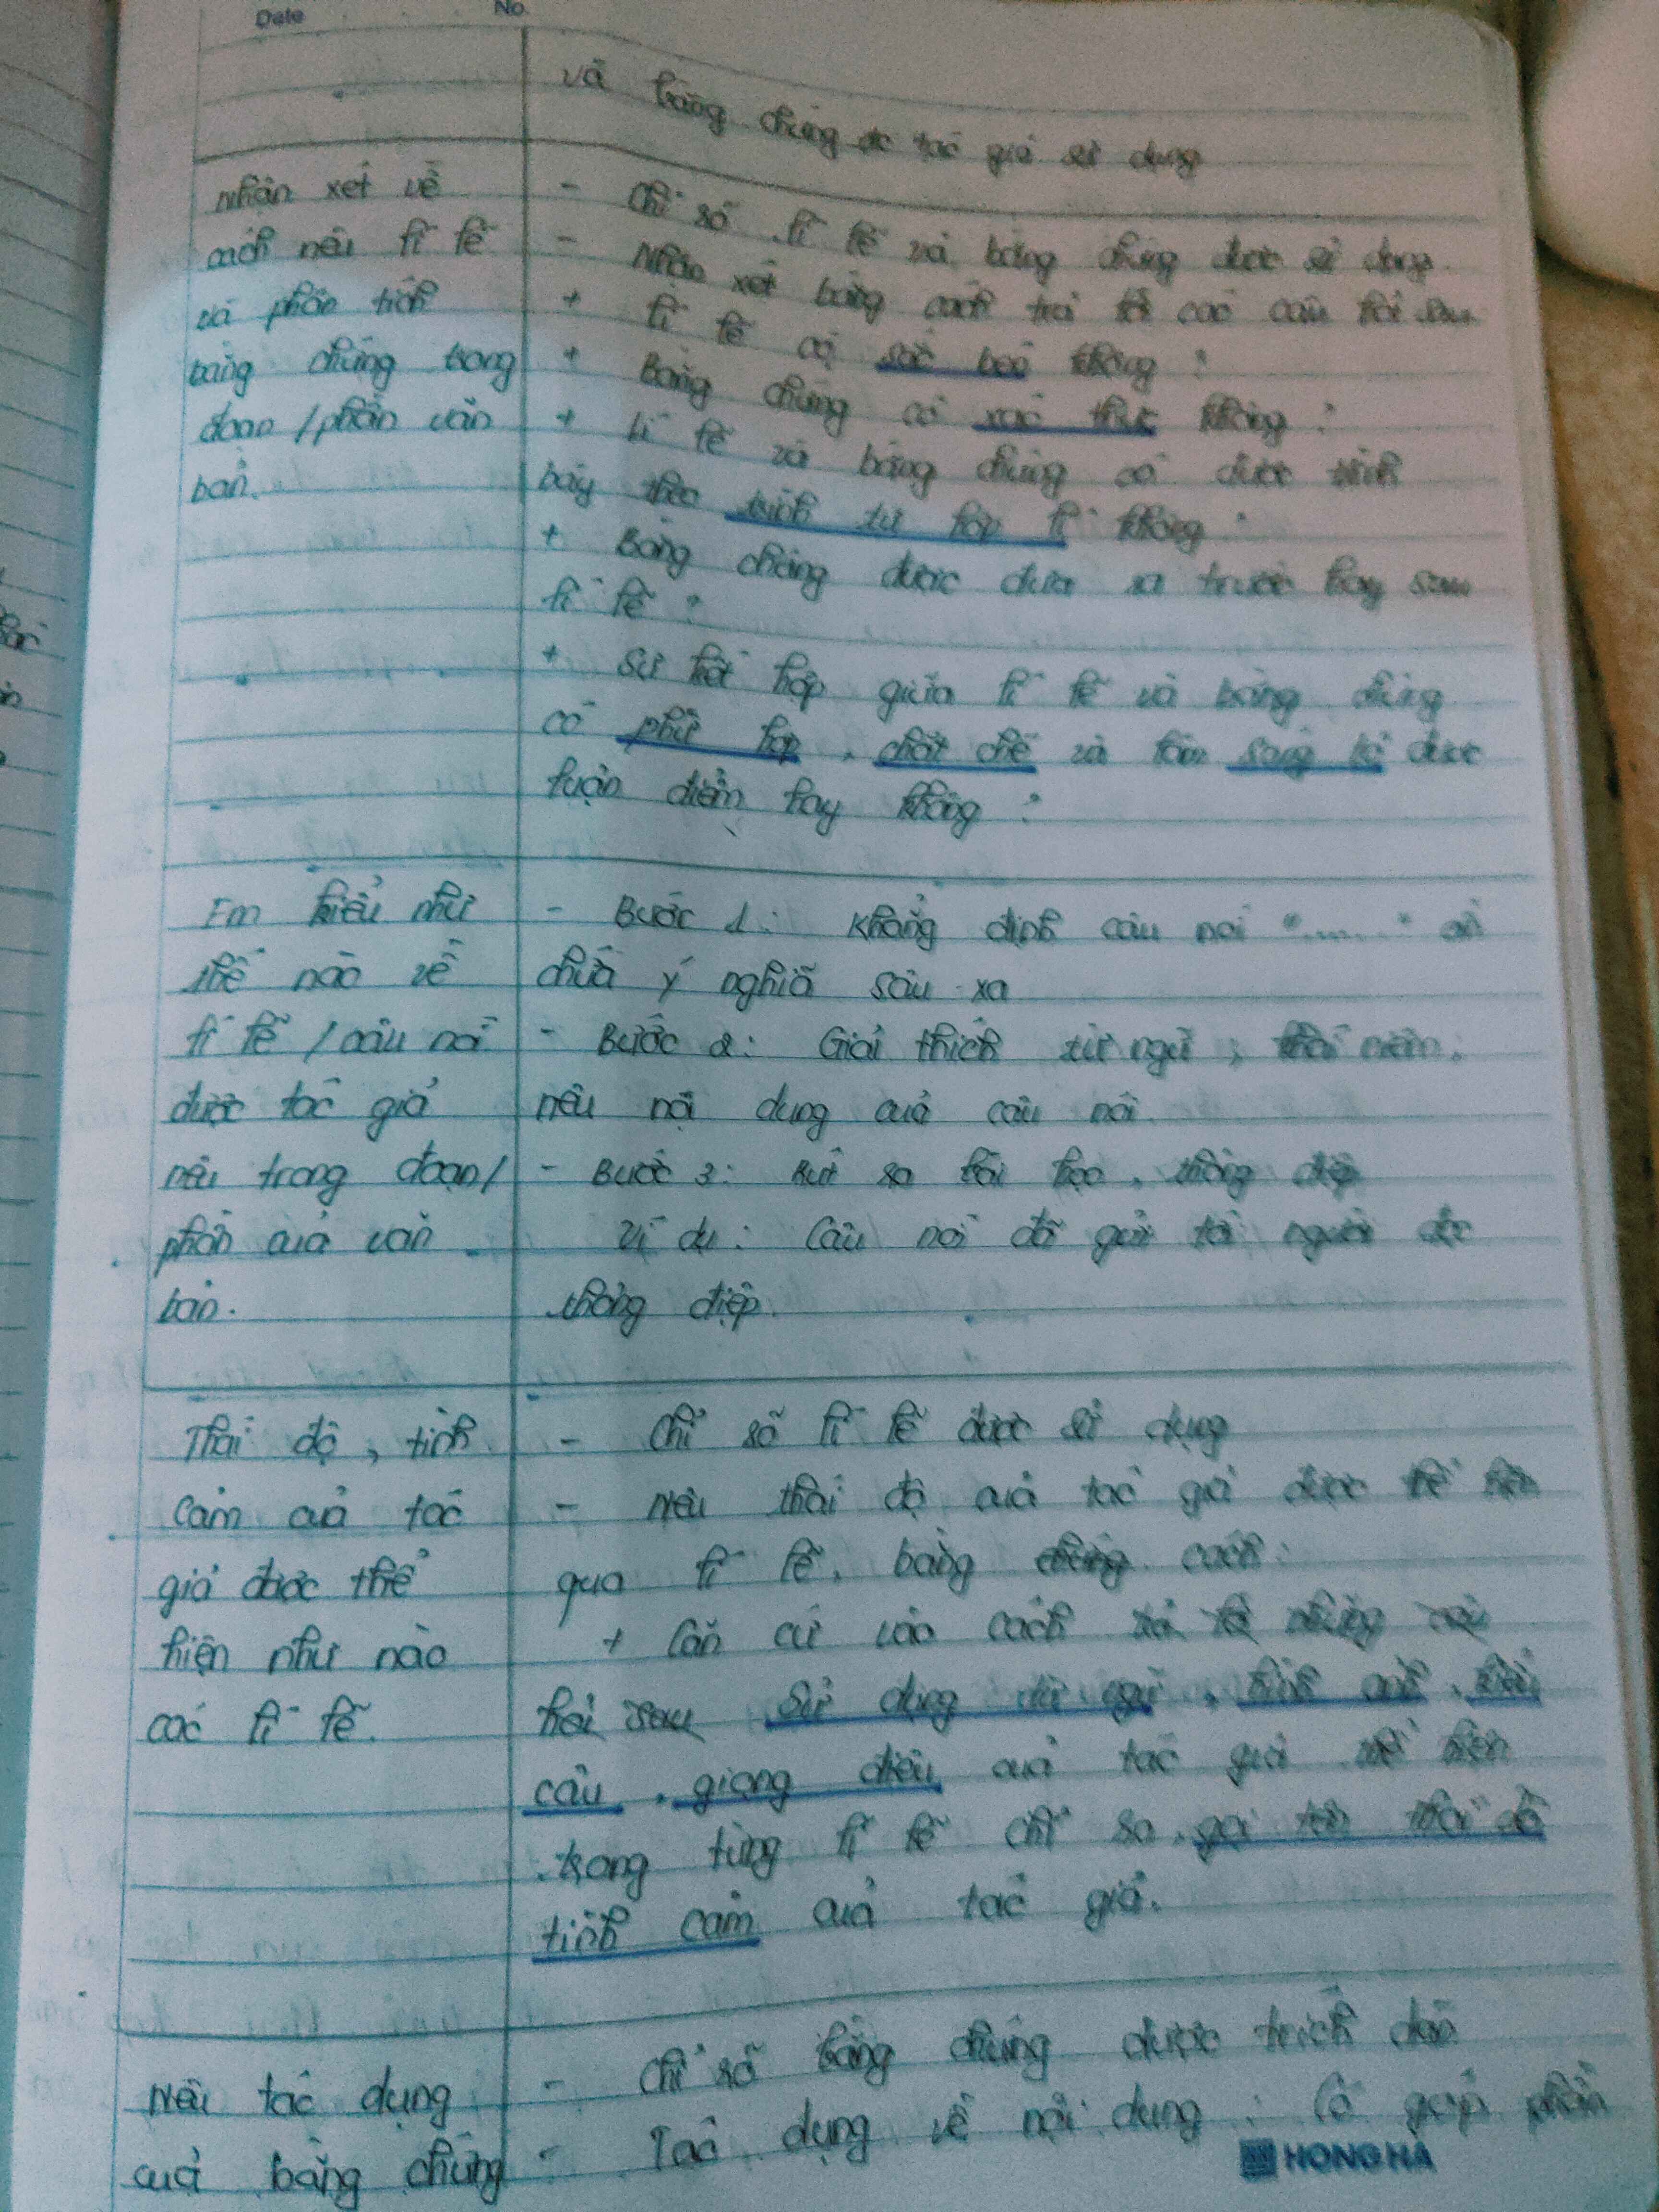 Date No.
và bằng chứng đc tác giả sử dụng
Nhận xét về
cách nêu lí lẽ
và phân tích
bằng chứng trong
đoạn / phần văn
bản.
- Chỉ số lí lẽ và bằng chứng được sử dụng
- Nhận xét bằng cách trả lời các câu hỏi sau
+ lí lẽ có sắc béo không ?
+ Bằng chứng có xác thực không ?
+ Lí lẽ và bằng chứng có được trình
bày theo trình tự hợp lí không ?
+ Bằng chứng được đưa ra trước hay sau
lí lẽ ?
+ Sự kết hợp giữa lí lẽ và bằng chứng
có phù hợp, chặt chẽ và làm sáng tỏ được
luận điểm hay không ?
Em hiểu như
thế nào về
lí lẽ / câu nói
được tác giả
nêu trong đoạn /
phần của văn
bản.
- Bước 1: Khẳng định câu nói "......"
chứa ý nghĩa sâu xa
- Bước 2: Giải thích từ ngữ, khái niệm,
nêu nội dung của câu nói.
- Bước 3: Rút ra bài học, thông điệp
Ví dụ: Câu nói đã gửi tới người đọc
thông điệp.
Thái độ, tình
cảm của tác
giả được thể
hiện như nào
các lí lẽ.
- Chỉ số lí lẽ được sử dụng
- Nêu thái độ của tác giả được thể hiện
qua lí lẽ, bằng chứng cách:
+ Căn cứ vào cách trả lời những câu
hỏi sau sử dụng từ ngữ, hình ảnh, kiểu
câu, giọng điệu của tác giả thể hiện
trong từng lí lẽ chỉ ra, gọi tên thái độ
tình cảm của tác giả.
Nêu tác dụng
của bằng chứng
- Chỉ số bằng chứng được trích dẫn
- Tác dụng về nội dung: Có góp phần
HONG HA